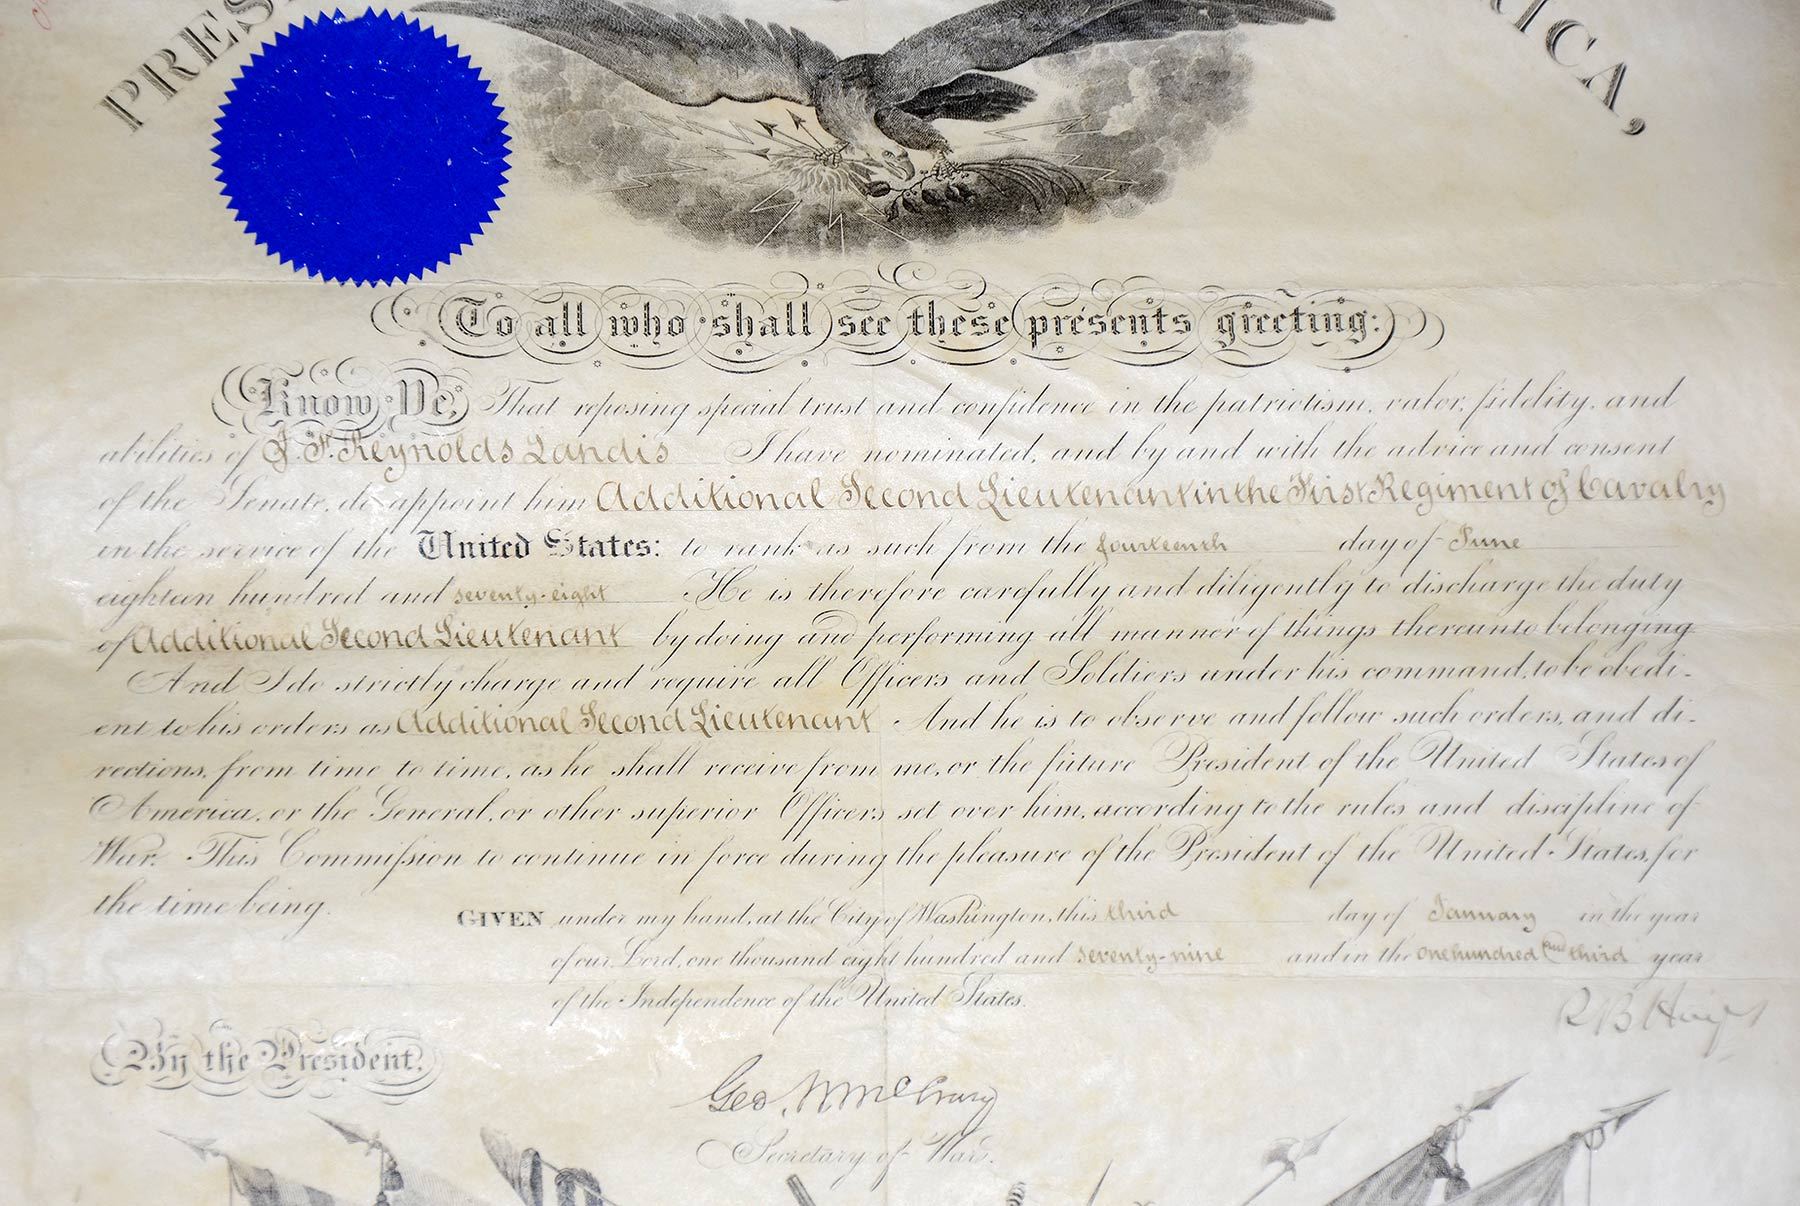 PRES
RICA,
To all who shall see these presents greeting:
Know Ye, That reposing special trust and confidence in the patriotism, valor, fidelity, and
abilities of J. F. Reynolds Landis I have nominated, and by and with the advice and consent
of the Senate, do appoint him Additional Second Lieutenant in the First Regiment of Cavalry
in the service of the United States: to rank as such from the fourteenth day of June
eighteen hundred and seventy-eight. He is therefore carefully and diligently to discharge the duty
of Additional Second Lieutenant by doing and performing all manner of things thereunto belonging.
And I do strictly charge and require all Officers and Soldiers under his command, to be obedi-
ent to his orders as Additional Second Lieutenant And he is to observe and follow such orders, and di-
rections, from time to time, as he shall receive from me, or the future President of the United States of
America, or the General, or other superior Officers set over him, according to the rules and discipline of
War. This Commission to continue in force during the pleasure of the President of the United States, for
the time being.
GIVEN under my hand, at the City of Washington, this third day of January in the year
of our Lord, one thousand eight hundred and seventy-nine and in the one hundred and third year
of the Independence of the United States.
R B Hayes
By the President.
Geo. W McCrary
Secretary of War.